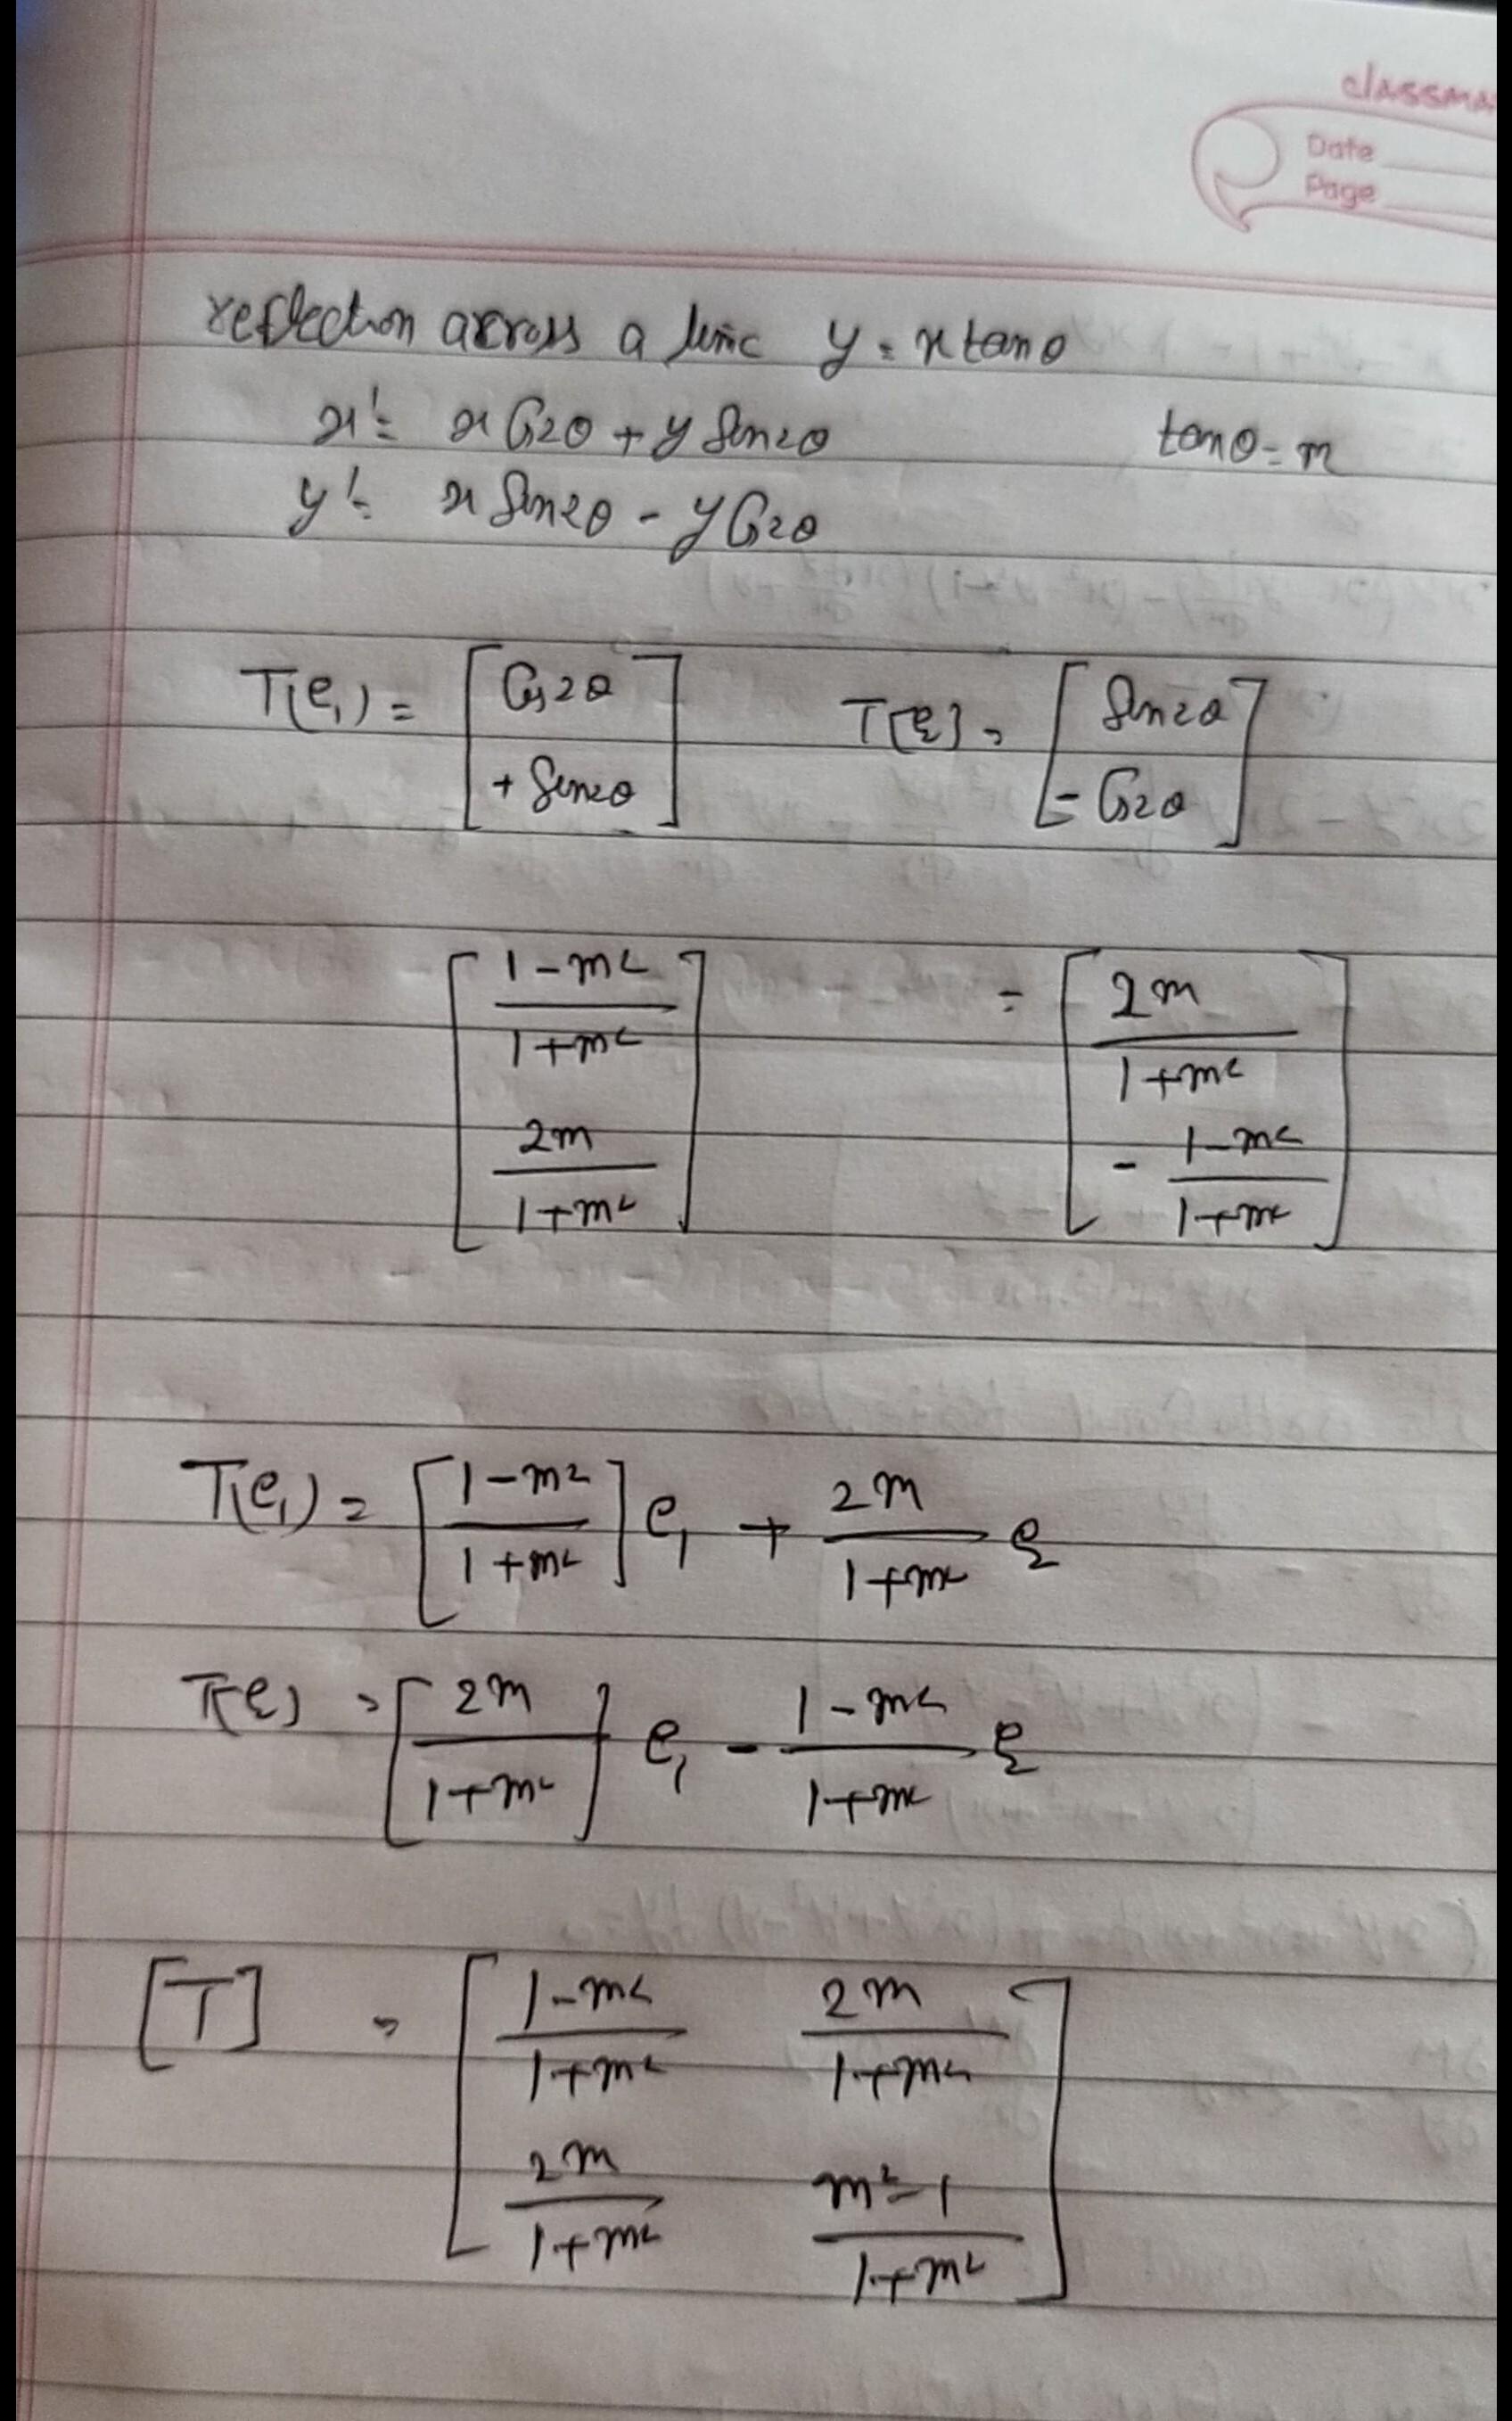 classma
Date
Page
reflection across a line y = x tanθ
x' = x Cos2θ + y Sin2θ tanθ = m
y' = x Sin2θ - y Cos2θ
T(e₁) = [Cos2θ + Sin2θ] T[e₂] = [Sin2θ - Cos2θ]
[(1-m²)/(1+m²) 2m/(1+m²)] = [2m/(1+m²) - (1-m²)/(1+m²)]
T(e₁) = [(1-m²)/(1+m²)] e₁ + 2m/(1+m²) e₂
T(e₂) = [2m/(1+m²)] e₁ - (1-m²)/(1+m²) e₂
[T] = [(1-m²)/(1+m²) 2m/(1+m²)
2m/(1+m²) (m²-1)/(1+m²)]